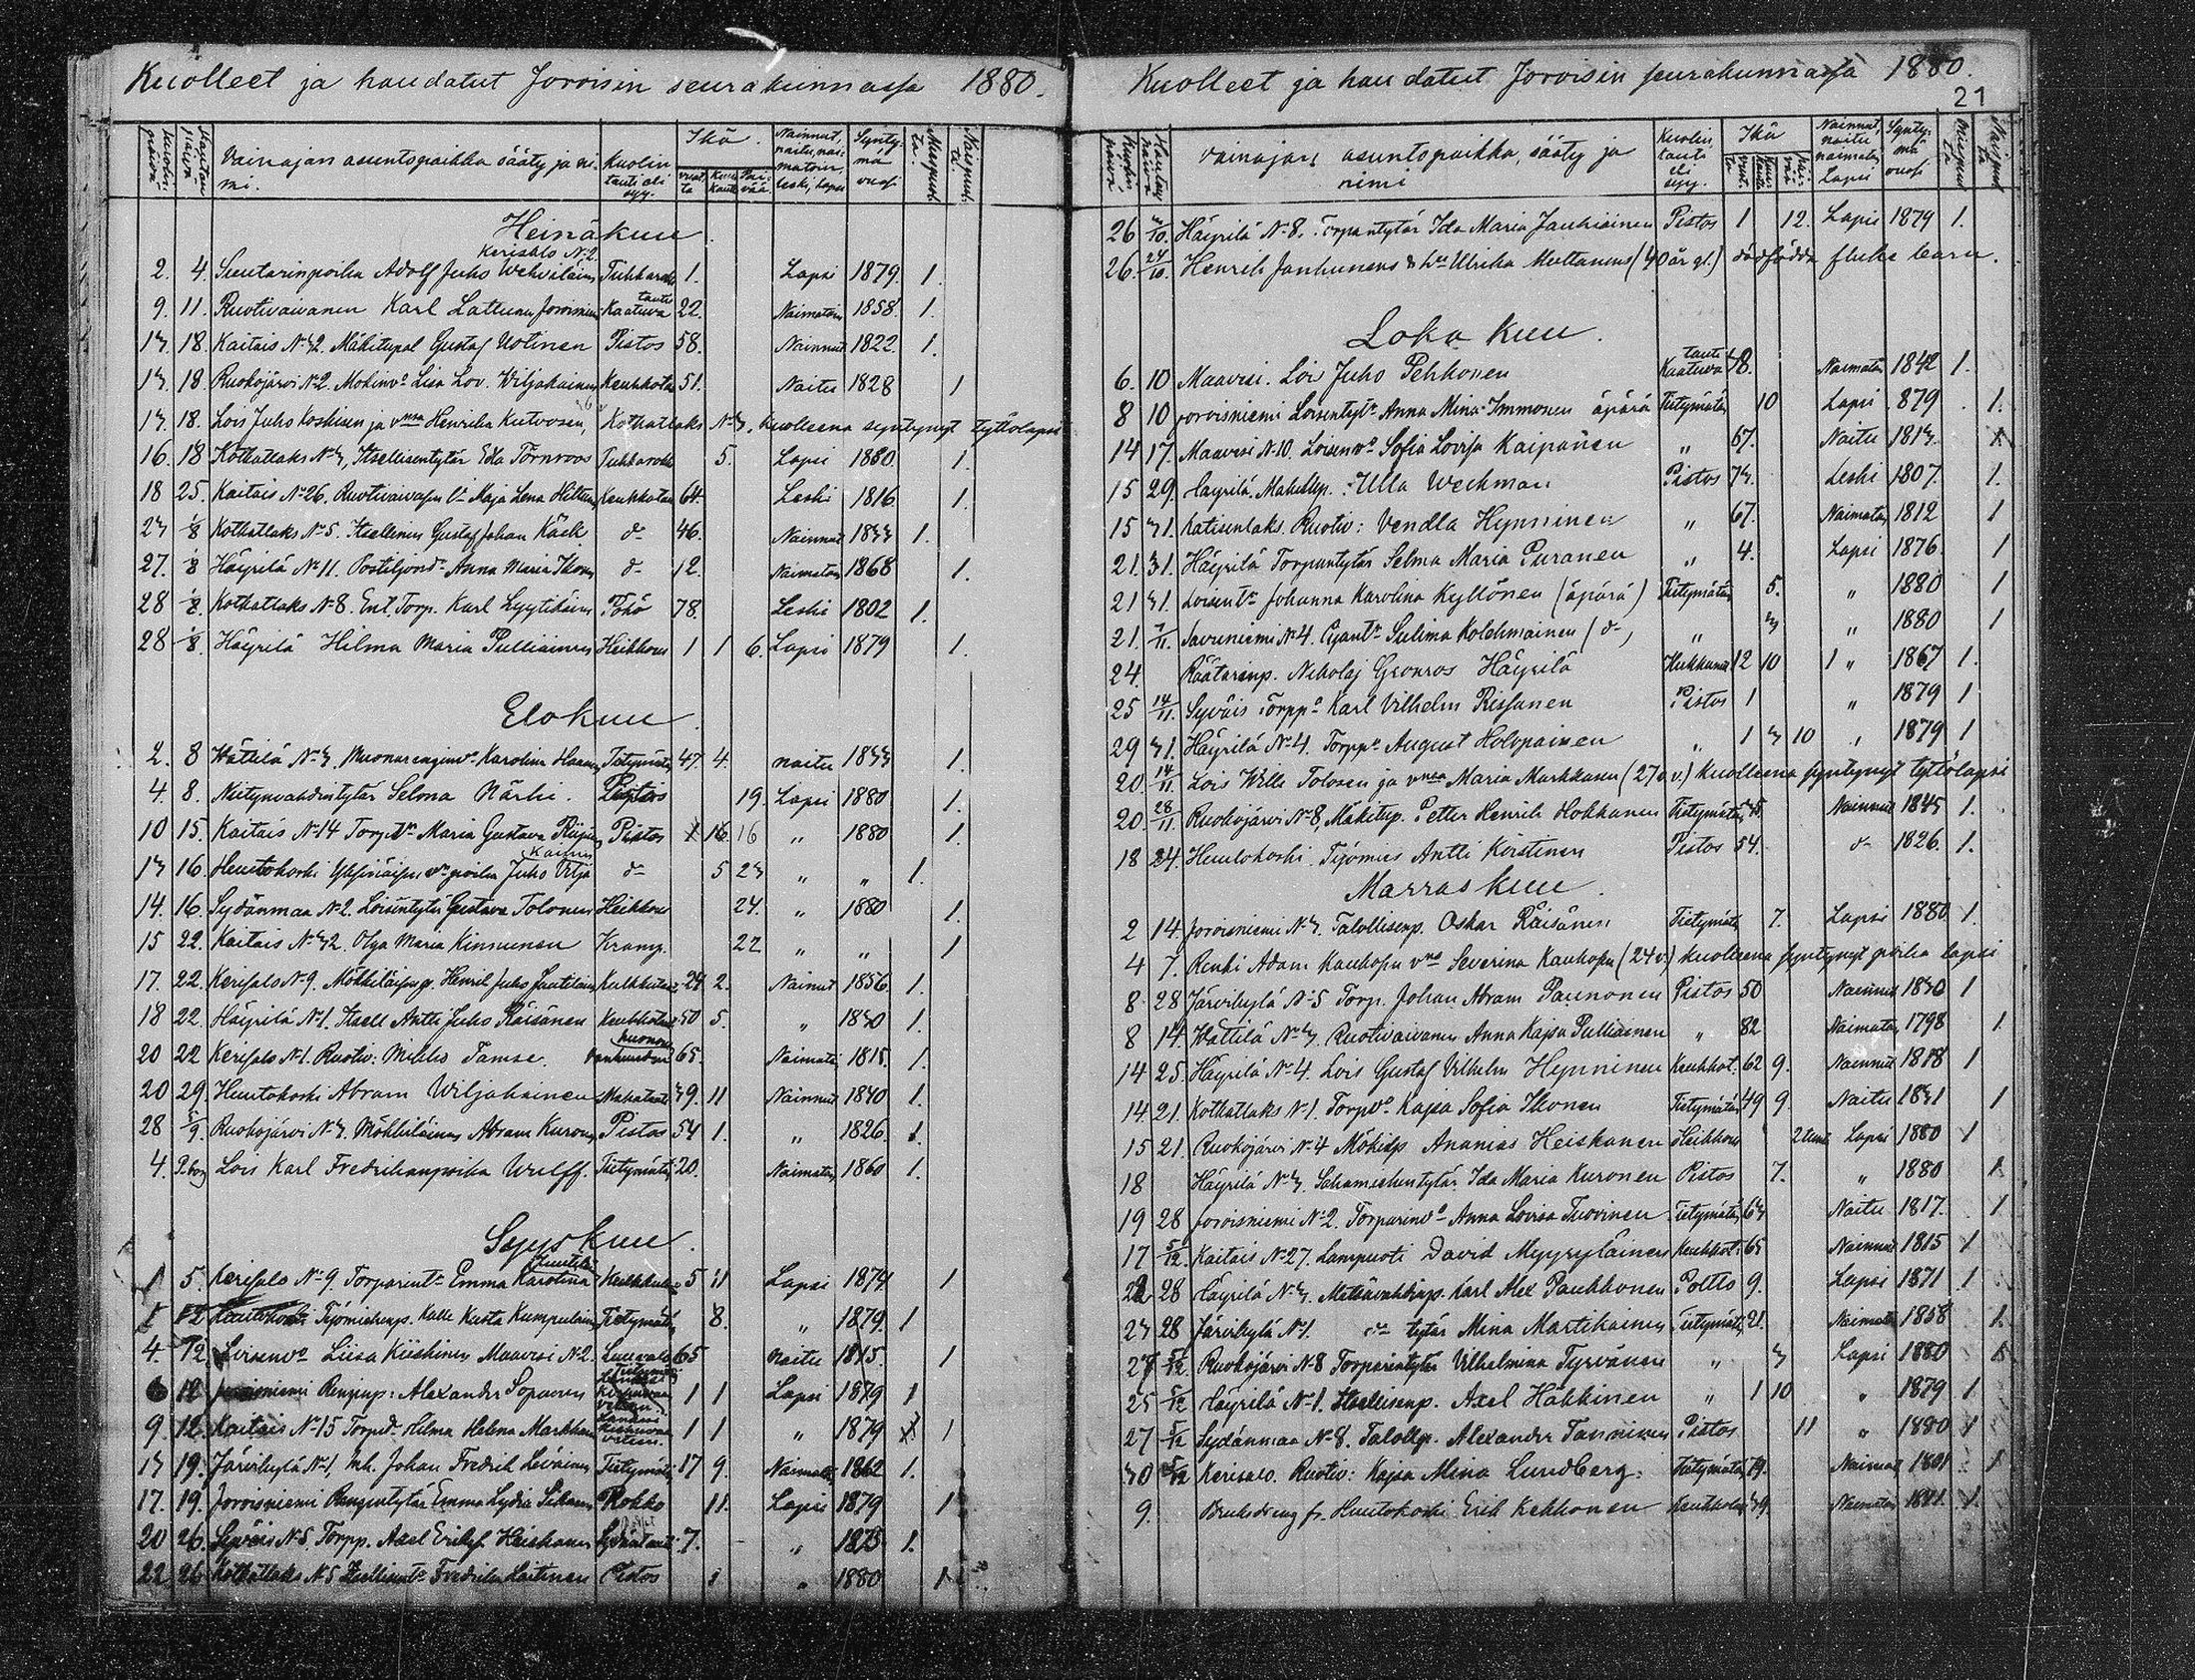 Kuolleet ja haudatut Joroisin seurakunnassa 1880.
Kuolin päivä Hautaus päivä Vainajan asuntopaikka sääty ja nimi. Kuolin tauti eli syy. Ikä. vuotta Kuukautta Päivää Nainnut, naitu, naimatoin, leski, lapsi Syntymä vuosi Miespuolta. Vaimopuolta.
Heinäkuu
Kerisalo N:2.
2. 4. Suutarinpoika Adolf Juho Wehviläinen Tuhkarokko 1. Lapsi 1879. 1.
tauti
9. 11. Ruotivaivanen Karl Lattunen Joroisniemi Kaatuva 22. Naimatoin 1858. 1.
13. 18. Kaitais N:32. Mäkitupal Gustaf Uotinen Pistos 58. Nainnut 1822. 1.
13. 18. Ruokojärvi N:2. Mökinvo Lisa Lov. Wiljakainen Keuhkotauti 51. Naitu 1828 1
13. 18. Lois Juho Koskisen ja vmsa Henrika Kutvosen, Kotkatlaks N:3, kuolleena syntynyt tyttölapsi
16. 18 Kotkatlaks N:3, Itsellisentytär Eda Törnroos Tuhkarokk 5. Lapsi 1880. 1.
18 25. Kaitais N:26. Ruotivaivasen l:i Maja Lena Hiltunen Keuhkotau 64. Leski 1816. 1.
23 1/8 Kotkatlaks N:5. Itsellinen Gustaf Johan Käck d:o 46. Nainnut 1833 1.
27. 1/8 Häyrilä N:11. Postiljond. Anna Maria Ikonen d:o 12. Naimaton 1868 1.
28 1/8. Kotkatlaks N:8. Ent. Torp. Karl Lyytikäinen 78. Leski 1802 1.
28 1/8. Häyrilä Hilma Maria Pulliainen Heikkous 1 1 6. Lapsi 1879 1.
Elokuu.
2. 8 Wättilä N:3. Muonarenginvo Karolina Tietymätön 47. 4. naitu 1833 1.
4. 8. Niitynvahdintytär Selma Närhi. Pistos 19. Lapsi 1880 1.
10 15. Kaitais N:14 Torp.tr Maria Gustava Pistos 16 „ 1880 1.
kainen
13 16. Huutokoski poika Juho Vilja d:o 5 23 „ „ 1.
14. 16. Sydänmaa N:2. Loisentytär Gustava Tolonen Heikkous 24. „ 1880 1.
15 22. Kaitais N:32. Olga Maria Kinnunen Kramp. 22 „ „ 1
17. 22. Kerisalo N:9. Henrik Juho Jantilainen 24 2. Nainut 1856. 1.
18 22. Häyrilä N:1. Itsell Antti Juho Räisänen Keuhkotau 50 5. „ 1830 1.
20 22 Kerisalo N:1. Ruotiv: Mikko Tamse. vanhuuden 65. Naimatoin 1815. 1.
20 29. Huutokoski Abram Wiljakainen Mahatauti 39. 11 Nainnut 1840 1.
28 5/9. Ruokojärvi N:3. Mökkiläinen Abram Kuronen Pistos 54 1. „ 1826. 1.
4. Lois Karl Fredrikanpoika Wulff. Tietymätön 20. Naimaton 1860 1.
Syyskuu.
1 5. Kerisalo N:9. Torparint:r Emma Karolina 5 11 Lapsi 1874 1
1 12 Huutokoski Työmiehenp. Kalle Kusta Kumpulainen Tietymätön 8. „ 1879. 1
4. 12. Loisenvo Liisa Kiiskinen Maavesi N:2. Luuvalo 65 naitu 1815. 1
12 Joroisniemi Rengip: Alexander Soponen 1 1 Lapsi 1879 1
9. 12. Kaitais N:15 Torpd:r Hilma Helena Markkanen 1 1 „ 1879 1
13 19. Järvikylä N:1, Johan Fredrik Leväinen Tietymätön 17 9. Naimaton 1862 1.
17. 19. Joroisniemi Rengintytär Emma Lydia Rokko 11. Lapsi 1879 1
20 26. Syväis N:5. Torpp. Axel Erikp. Heiskanen Sydäntauti 7. „ 1873 1.
22. 26 Kotkatlaks N:5 Itsellisent:r Fredrika Laitinen Pistos „ 1880 1
Kuolleet ja haudatut Joroisin seurakunnassa 1880.
21
Kuolin päivä Hautaus päivä Vainajan asuntopaikka, sääty ja nimi Kuolin tauti eli syy. Ikä vuotta kuukautta päivää Nainnut, naitu naimaton Lapsi Syntymä vuosi Miespuolta Vaimopuolta
26 3/10. Häyrilä N:8. Torparintytär Ida Maria Jauhiainen Pistos 1 12. Lapsi 1879 1.
26. 24/10. Henrik Janhunens & hu Ulrika Muttanens (40 år gl.) dödfödda flicke barn.
Loka kuu.
tauti
6. 10 Maavesi. Lois Juho Pehkonen Kaatuva 38. Naimaton 1842 1.
8 10 Joroisniemi Loisentyt:r Anna Mina Immonen äpärä Tietymätön 10 Lapsi 1879 1.
14 17. Maavesi N:10. Loisenvo Sofia Lovisa Kaipainen „ 67. Naitu 1813. 1.
15 29. Häyrilä. Mäkitlp. Ulla Weckman Pistos 73. Leski 1807. 1.
15 31. Katisenlaks. Ruotiv: Vendla Hynninen „ 67. Naimaton 1812 1
21. 31. Häyrilä Torparintytär Selma Maria Puranen „ 4. Lapsi 1876. 1
21 31. Loisent:r Johanna Karolina Kyllönen (äpärä) Tietymätön 5. „ 1880 1
21. 7/11. Savuniemi N:4. Sulima Kolehmainen (d:o) „ 3 „ 1880 1
24. Räätärinp. Nikolaj Gronros Häyrilä 12 10 1 „ 1867 1.
25 14/11. Syväis Torpp. Karl Vilhelm Rissanen Pistos 1 „ 1879 1
29 31. Häyrilä N:4. Torpp. August Holopainen „ 1 3 10 „ 1879 1
20. 14/11. Lois Wille Tolosen ja vmsa Maria Markkanen (27 v.) kuolleena syntynyt tyttölapsi
20. 28/11. Ruokojärvi N:8, Mäkitup. Petter Henrik Hokkanen Tietymätön 35. Nainnut 1845 1.
18 24. Huutokoski. Työmies Antti Kirstinen Pistos 54. d:o 1826. 1.
Marraskuu.
2 14. Joroisniemi N:3. Talollisenp. Oskar Räisänen Tietymätön 7. Lapsi 1880 1.
4 7. Renki Adam Kauhosen vmo Severina Kauhosen (24 v.) kuolleena syntynyt poika lapsi
8 28 Järvikylä N:5 Torp. Johan Abram Paunonen Pistos 50 Nainnut 1830 1
8 14. Wättilä N:3. Ruotivaivanen Anna Kajsa Pulliainen „ 82 Naimaton 1798 1.
14 25. Häyrilä N:4. Lois Gustaf Vilhelm Hynninen Keuhkot. 62 9. Nainnut 1818 1
14. 21. Kotkatlaks N:1. Torpvo. Kajsa Sofia Ikonen Tietymätön 49 9. Naitu 1831 1
15 21. Ruokojärvi N:4 Mökisp Ananias Heiskanen Heikkous 2 tunt Lapsi 1880 1
18 Häyrilä N:3. Sahamiehentytär. Ida Maria Kuronen Pistos 7. „ 1880 1.
19 28 Joroisniemi N:2. Torparinvo Anna Lovisa Tuovinen Tietymätön 63 Naitu 1817. 1
17 5/12. Kaitais N:27. Lampuoti David Myyryläinen Keuhkot: 65 Nainnut 1815 1
22 28 Häyrilä N:3. Metsävahtinp. Karl Alex Paukkonen Poltto 9. Lapsi 1871 1
23 28 Järvikylä N:1. d:o tytär Mina Martikainen Tietymätön 21. Naimaton 1858 1.
27 5/12. Ruokojärvi N:8 Torparintytär Vilhelmina Tyrväinen „ 3 Lapsi 1880 1
25 5/12 Häyrilä N:1. Itsellisenp. Axel Häkkinen „ 1 10 „ 1879 1
27 5/12 Sydänmaa N:8. Talollp. Alexander Tanninen Pistos 11 „ 1880 1
30 5/12 Kerisalo. Ruotiv: Kajsa Mina Lundberg. Tietymätön 79. Naimat 1801 1
9. Bruksdreng fr. Huutokoski Erik Kekkonen Keuhkotau 39. Naimaton 1841. 1.